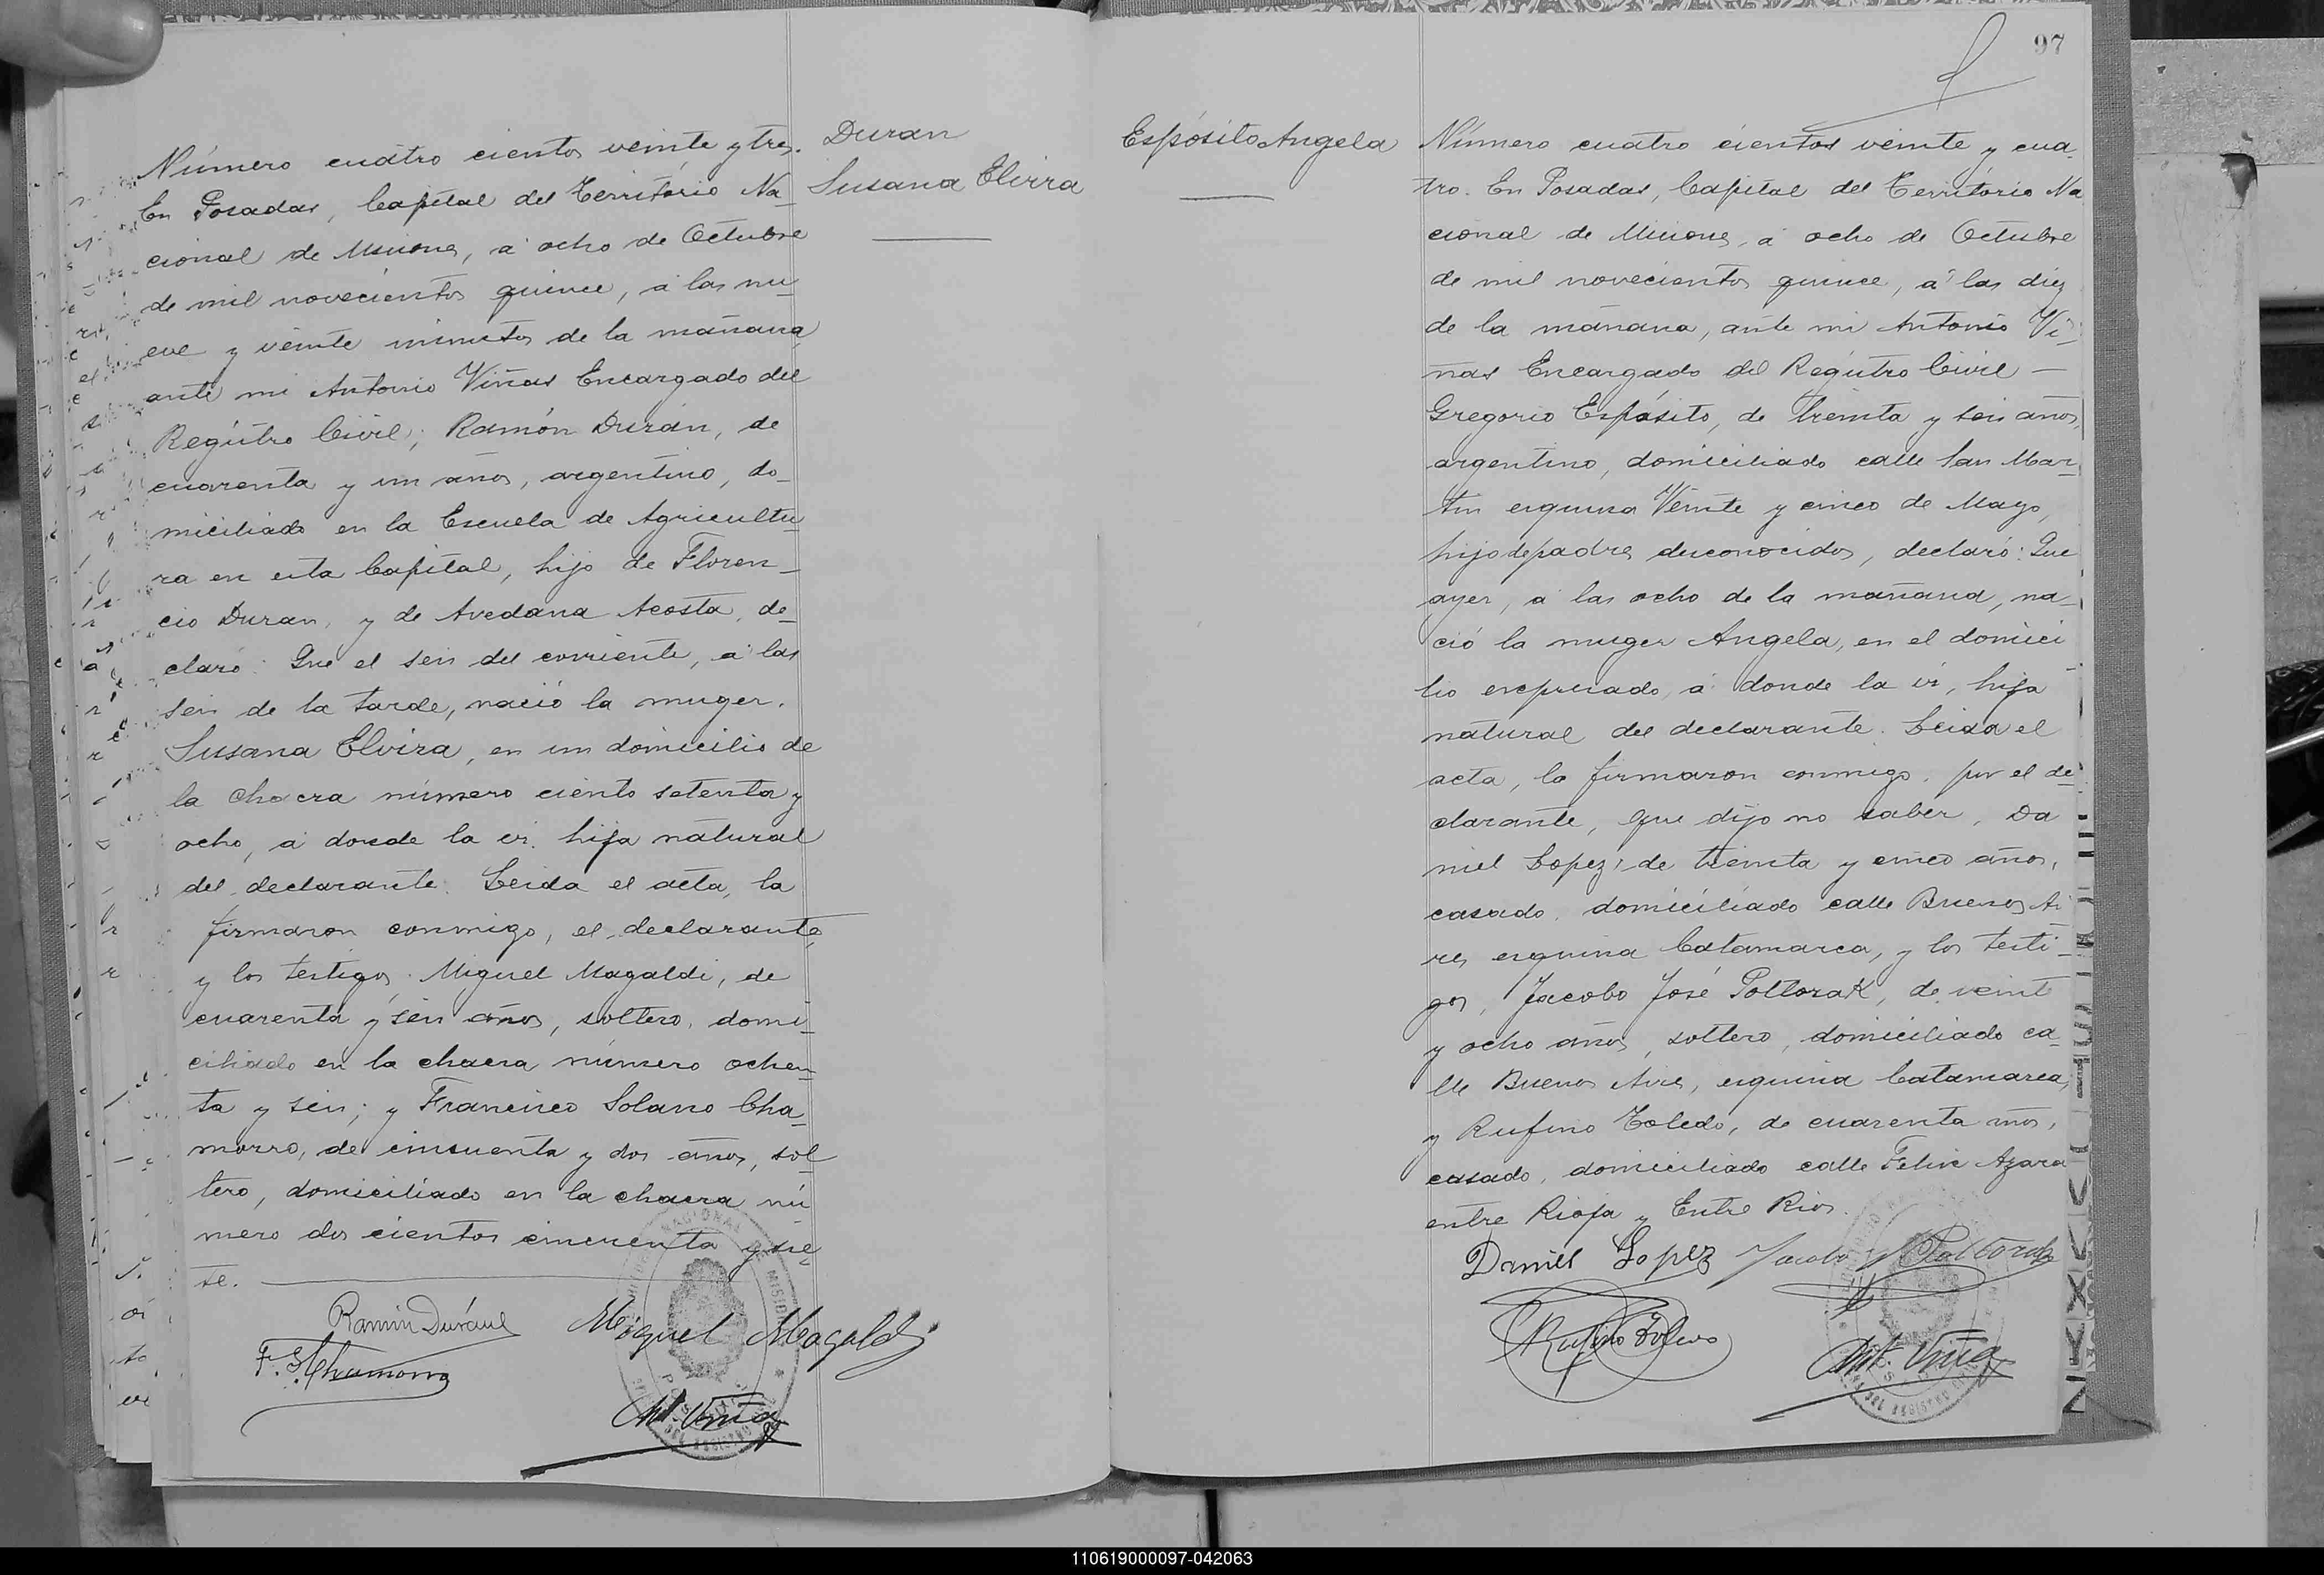 Número cuatro cientos veinte y tres.
En Posadas, Capital del Territorio Na_
cional de Misiones, á ocho de Octubre
de mil novecientos quince, á las nu_
eve y veinte minutos de la mañana
ante mi Antonio Viñas Encargado del
Registro Civil; Ramón Durán, de
cuarenta y un años, argentino, do_
miciliado en la Escuela de Agricultu_
ra en esta Capital, hijo de Floren_
cio Duran, y de Avedana Acosta, de_
claró: Que el seis del corriente, á las
seis de la tarde, nació la muger.
Susana Elvira, en un domicilio de
la Chacra número ciento setenta y
ocho, á donde la vi. hija natural
del declarante. Leida el acta, la
firmaron conmigo, el declarante,
y los testigos. Miguel Magaldi, de
cuarenta y seis años, soltero, domi_
ciliado en la chacra número ochen_
ta y seis; y Francisco Solano Cha_
morro, de cincuenta y dos años, sol_
tero, domiciliado en la chacra nú_
mero dos cientos cincuenta y sie_
te.
Ramón Durán
Miguel Magaldi
F. S. Chamorro
Ant. Viñas
Duran
Susana Elvira
97
Espósito Angela
Número cuatro cientos veinte y cua_
tro. En Posadas, Capital del Territorio Na
cional de Misiones, á ocho de Octubre
de mil novecientos quince, á las diez
de la mañana, ante mi Antonio Vi_
ñas Encargado del Registro Civil —
Gregorio Espósito, de treinta y seis años,
argentino, domiciliado calle San Mar_
tin esquina Veinte y cinco de Mayo,
hijo de padres desconocidos, declaró: Que
ayer, á las ocho de la mañana, na_
ció la muger Angela, en el domici_
lio expresado, á donde la vi, hija
natural del declarante. Leida el
acta, la firmaron conmigo. por el de_
clarante, que dijo no saber, Da
niel Lopez, de treinta y cinco años,
casado, domiciliado calle Buenos Ai
res esquina Catamarca, y los testi_
gos, Jacobo José Poltorak, de veint
y ocho años, soltero, domiciliado ca_
lle Buenos Aires, esquina Catamarca,
y Rufino Toledo, de cuarenta años,
casado, domiciliado calle Felix Azara
entre Rioja y Entre Rios.
Daniel Lopez Jacobo J Poltorak
Rufino Toledo
Ant. Viñas
110619000097-042063